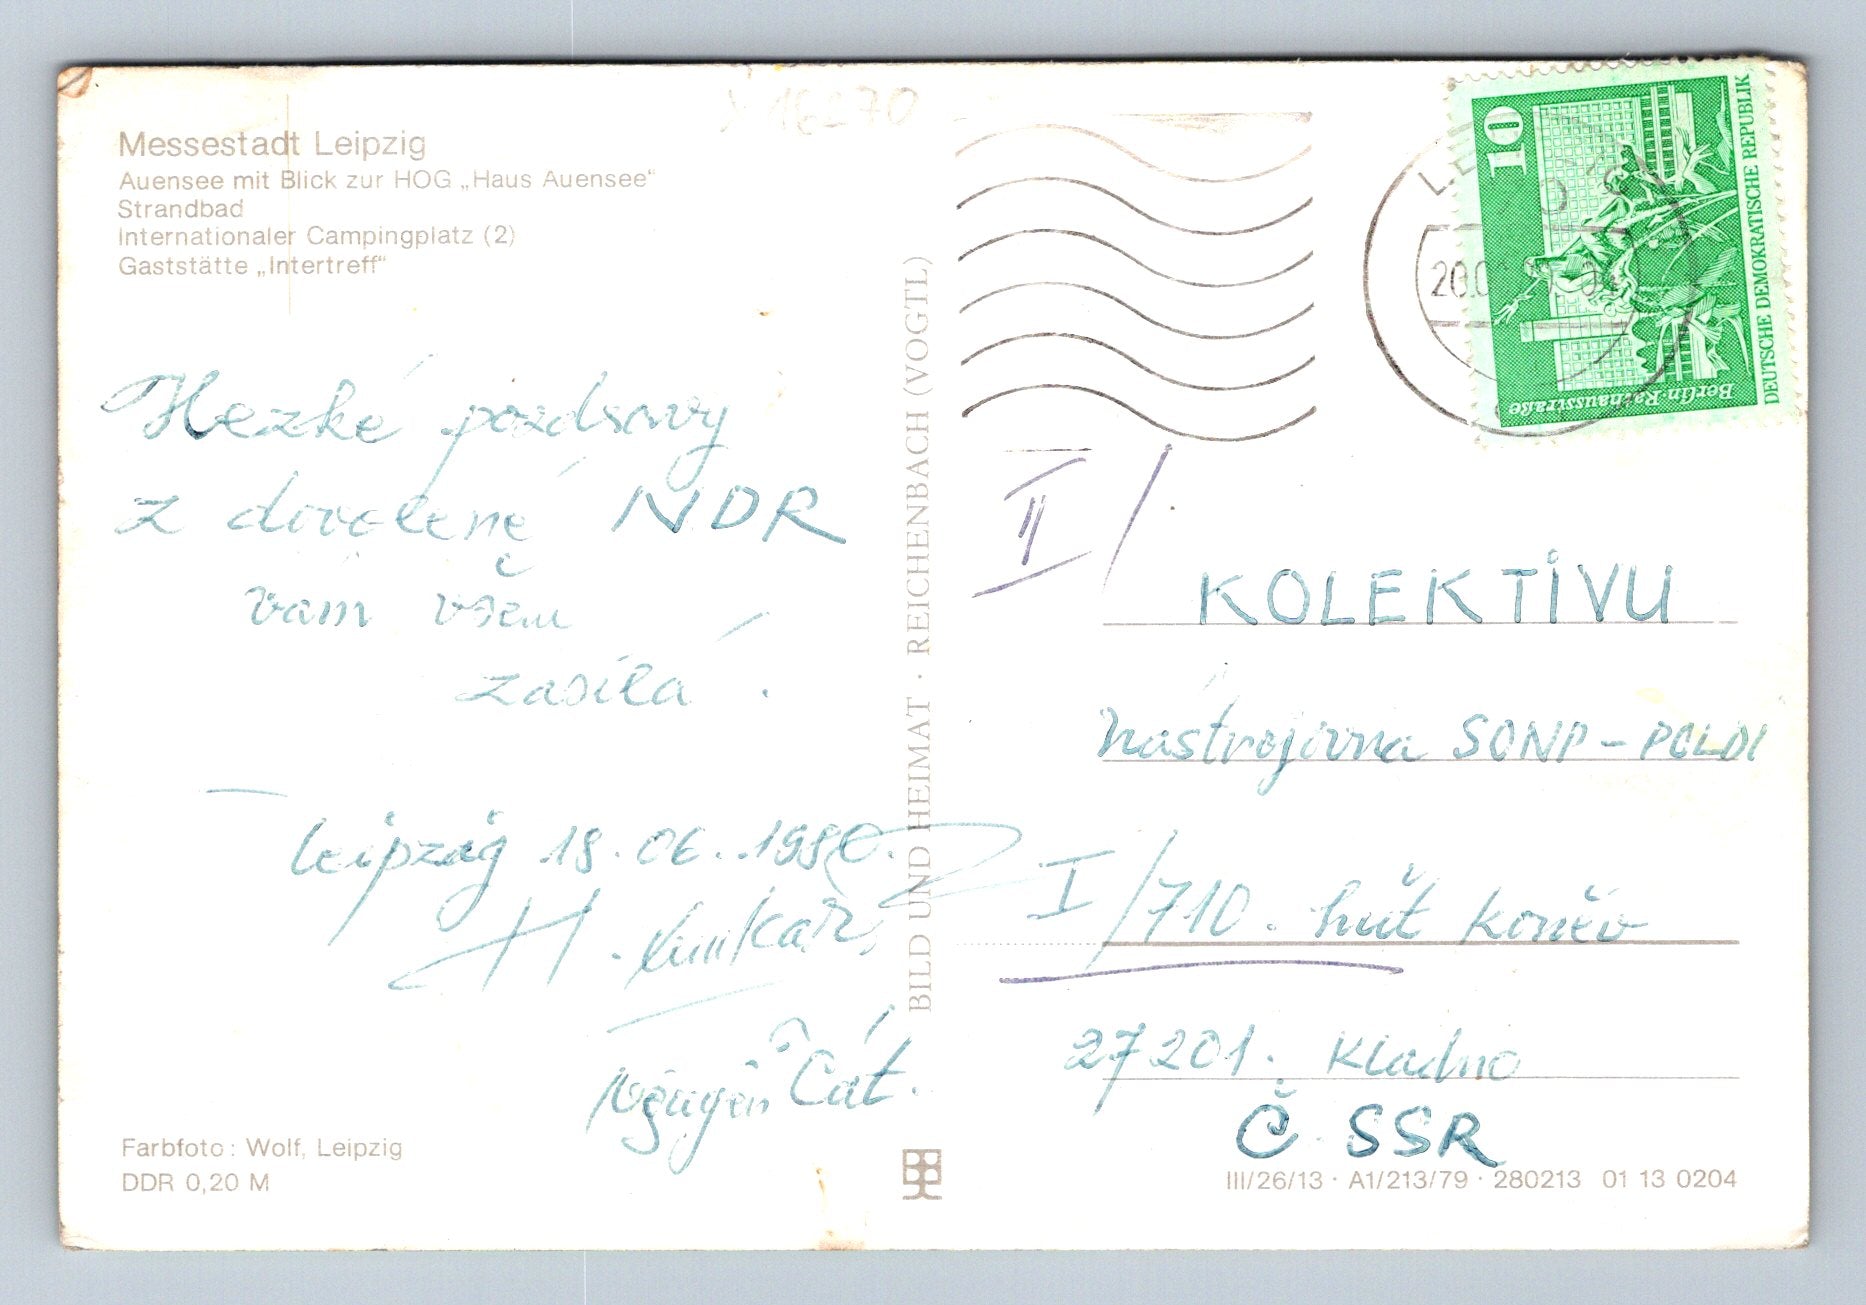 Messestadt Leipzig
Auensee mit Blick zur HOG „Haus Auensee“
Strandbad
Internationaler Campingplatz (2)
Gaststätte „Intertreff“
Hezké pozdravy
z dovolené NDR
vám všem
zasílá.
Leipzig 18.06.1980.
Nguyên Cát.
Farbfoto: Wolf, Leipzig
DDR 0,20 M
BILD UND HEIMAT · REICHENBACH (VOGTL)
10
DEUTSCHE DEMOKRATISCHE REPUBLIK
Berlin-Rathausstraße
II/
KOLEKTIVU
nástrojovna SONP-POLDI
I/710. huť Koněv
27201. Kladno
Č.SSR
III/26/13 · A1/213/79 · 280213 01 13 0204